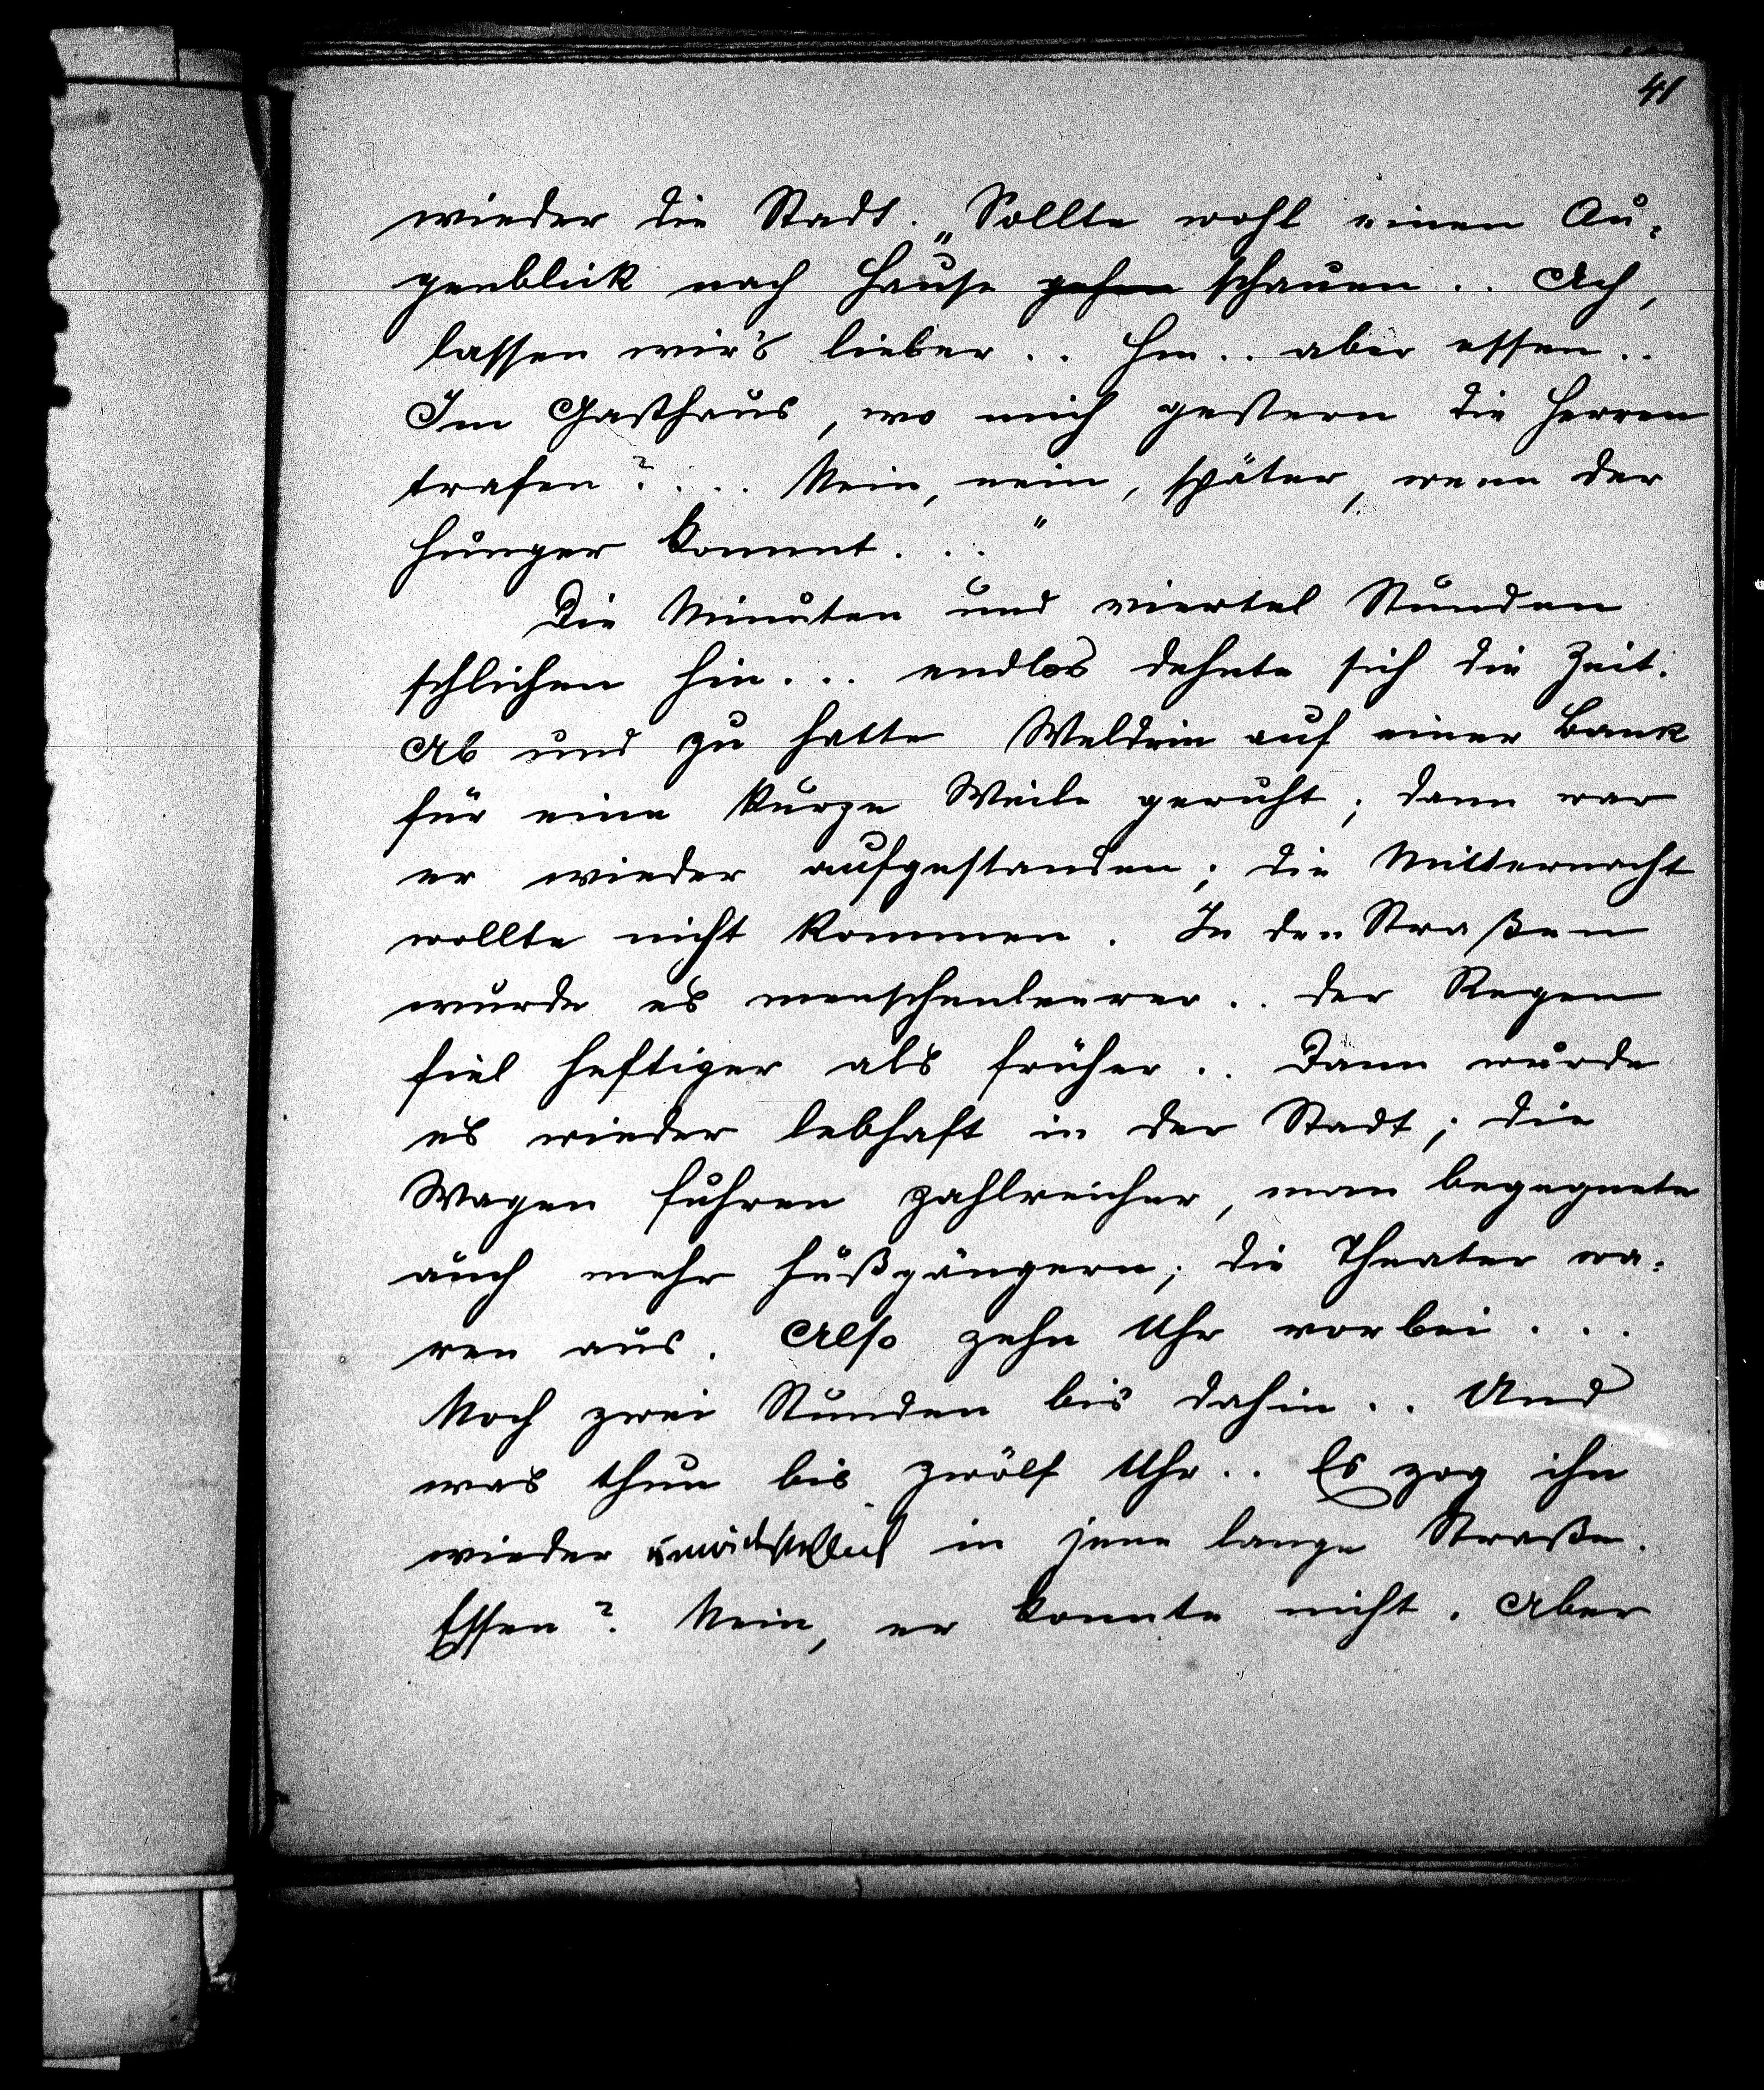 41
wieder die Stadt. „Sollte wohl einen Au-
genblick nach Hause gehen schauen .. Ach,
lassen wir's lieber .. Hm .. aber essen ..
Im Gasthaus, wo mich gestern die Herren
trafen? ... Nein, nein, später, wenn der
Hunger kommt ..."
Die Minuten und viertel Stunden
schlichen hin ... endlos dehnte sich die Zeit.
Ab und zu hatte Weldein auf einer Bank
für eine kurze Weile geruht; dann war
er wieder aufgestanden; die Mitternacht
wollte nicht kommen. In den Straßen
wurde es menschenleerer .. der Regen
fiel heftiger als früher .. Dann wurde
es wieder lebhaft in der Stadt; die
Wagen fuhren zahlreicher, man begegnete
auch mehr Fußgängern; die Theater wa-
ren aus. Also zehn Uhr vorbei ...
Noch zwei Stunden bis dahin .. Und
was thun bis zwölf Uhr .. Es zog ihn
wieder in jene lange Straße.
Essen? Nein, er konnte nicht. Aber